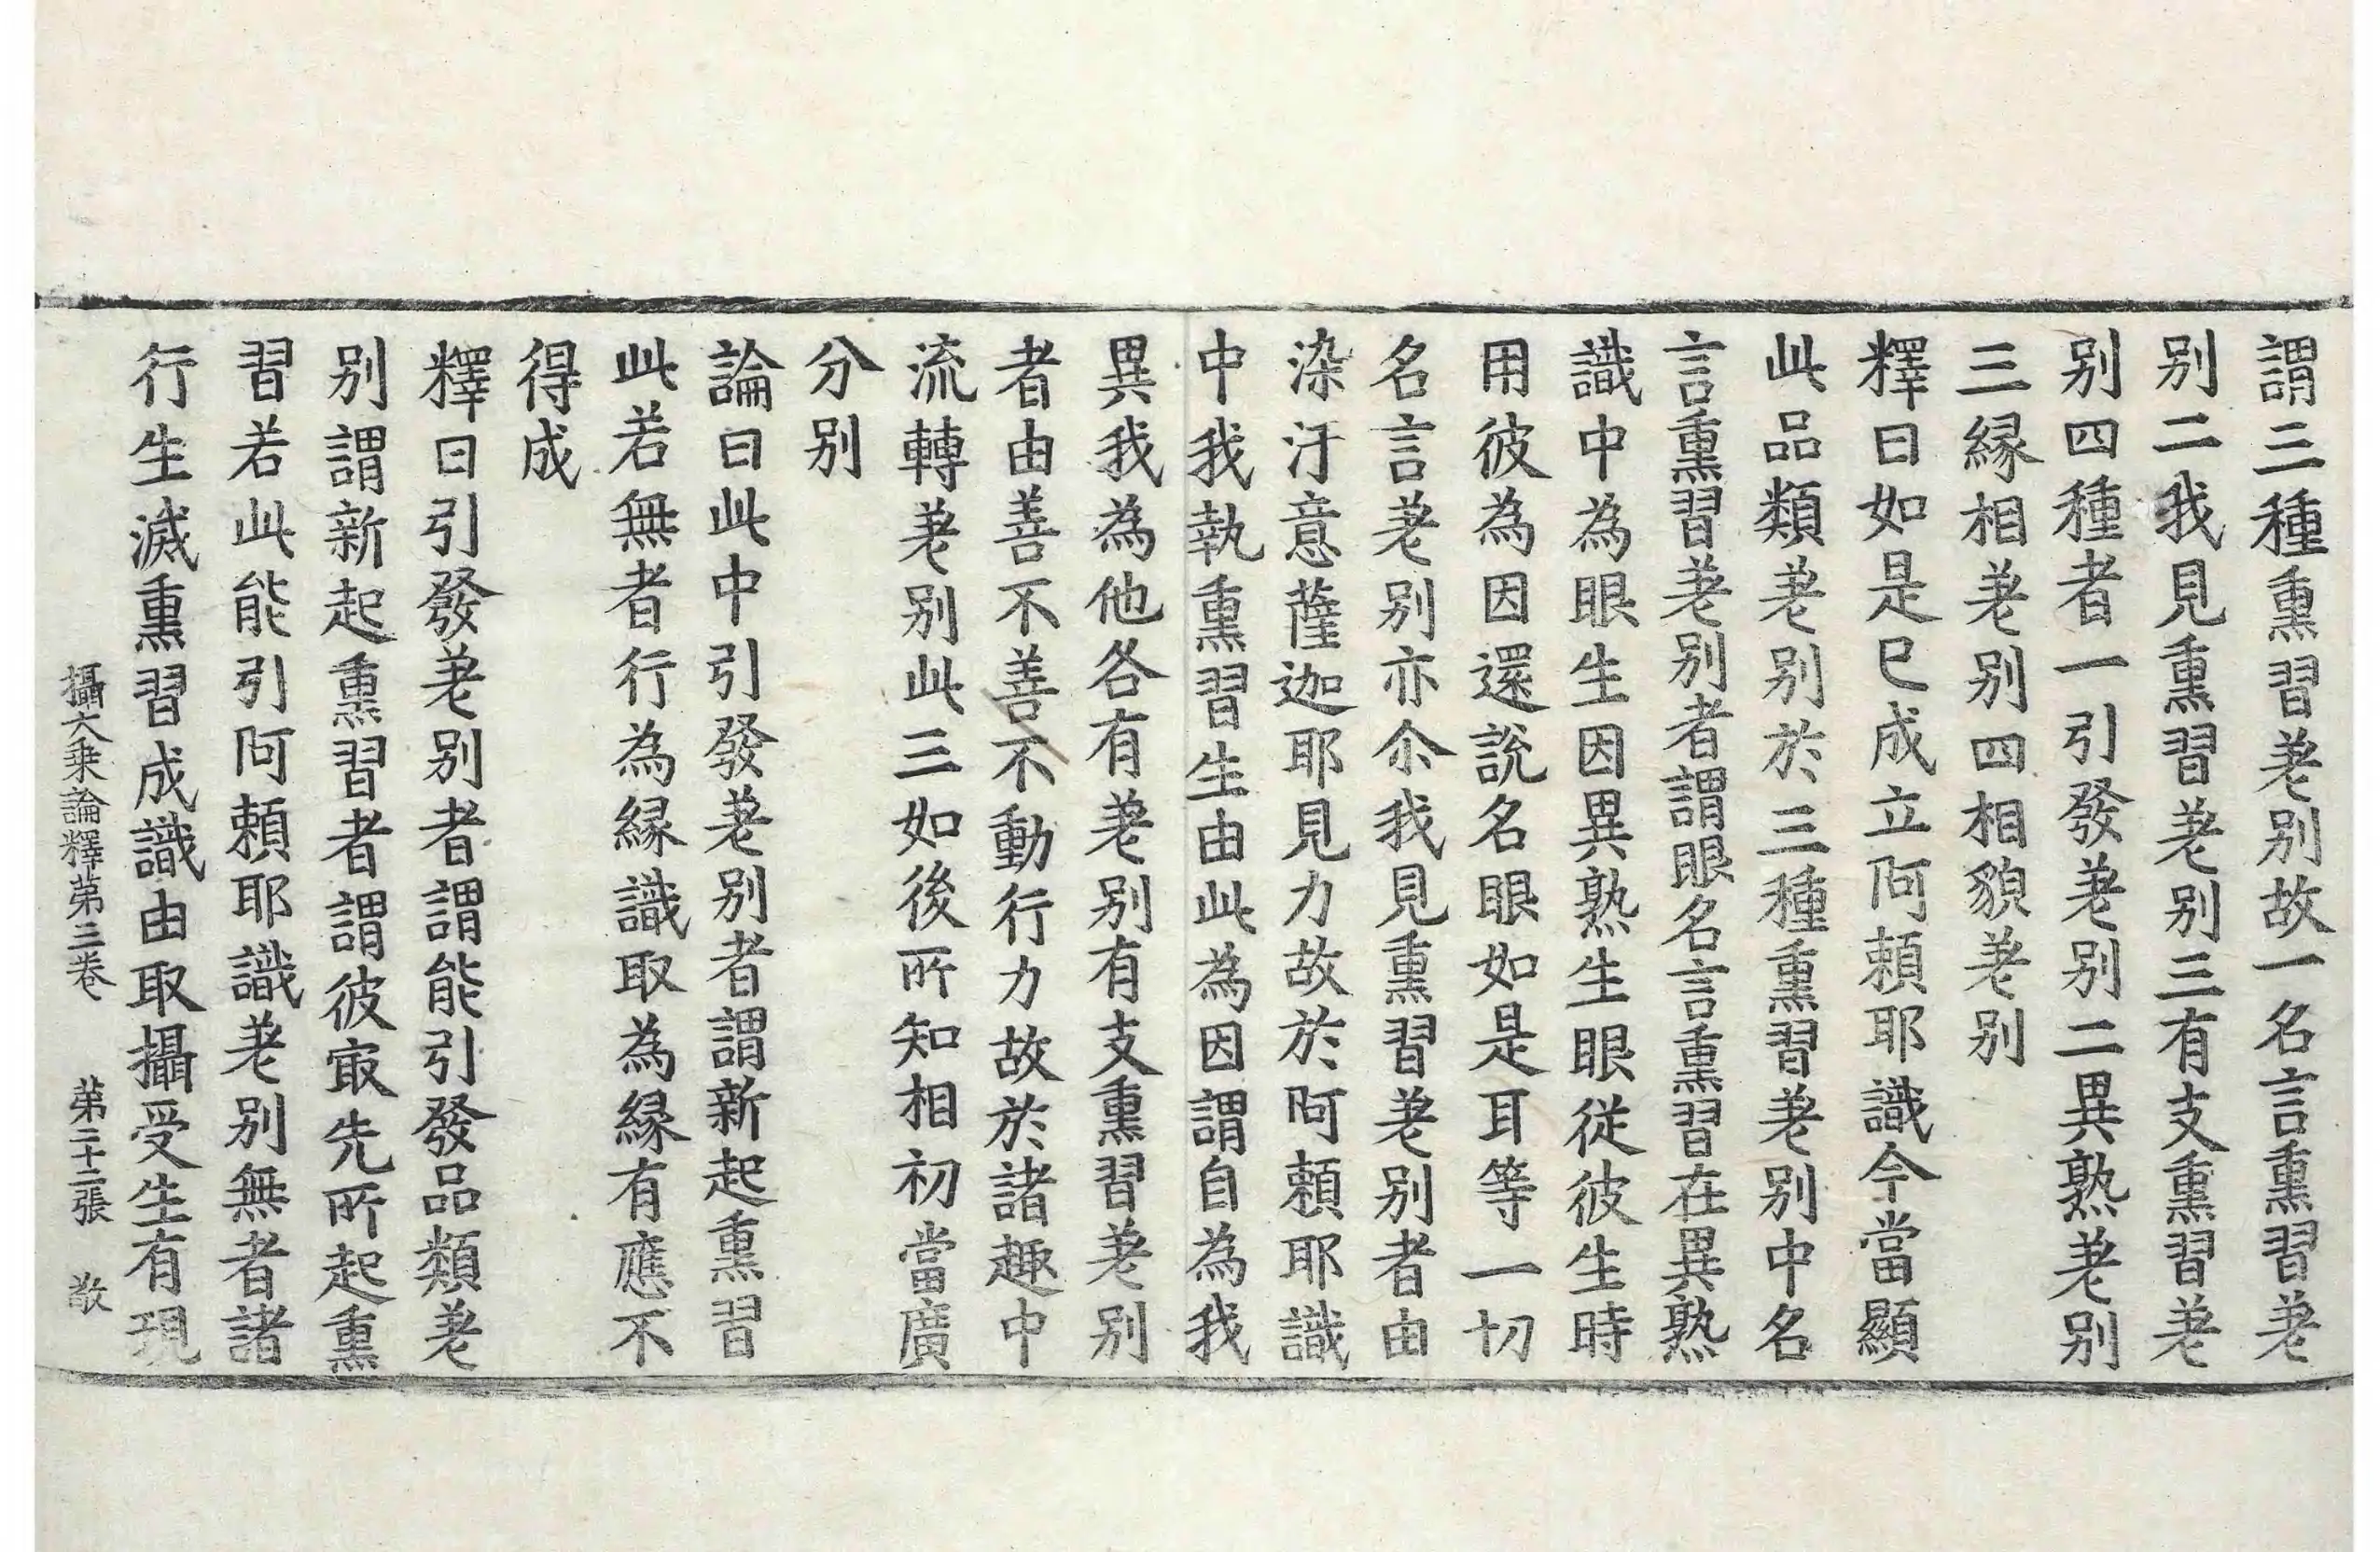 謂三種熏習差別故一名言熏習差
別二我見熏習差別三有支熏習差
別四種者一引發差別二異熟差別
三緣相差別四相貌差別
釋曰如是已成立阿賴耶識今當顯
此品類差別於三種熏習差別中名
言熏習差別者謂眼名言熏習在異熟
識中為眼生因異熟生眼從彼生時
用彼為因還說名眼如是耳等一切
名言差別亦尒我見熏習差別者由
染汙意薩迦耶見力故於阿賴耶識
中我執熏習生由此為因謂自為我
異我為他各有差別有支熏習差別
者由善不善不動行力故於諸趣中
流轉差別此三如後所知相初當廣
分別
論曰此中引發差別者謂新起熏習
此若無者行為緣識取為緣有應不
得成
釋曰引發差別者謂能引發品類差
別謂新起熏習者謂彼㝡先所起熏
習若此能引阿賴耶識差別無者諸
行生滅熏習成識由取攝受生有現
攝大乗論釋第三卷　第二十二張　敬